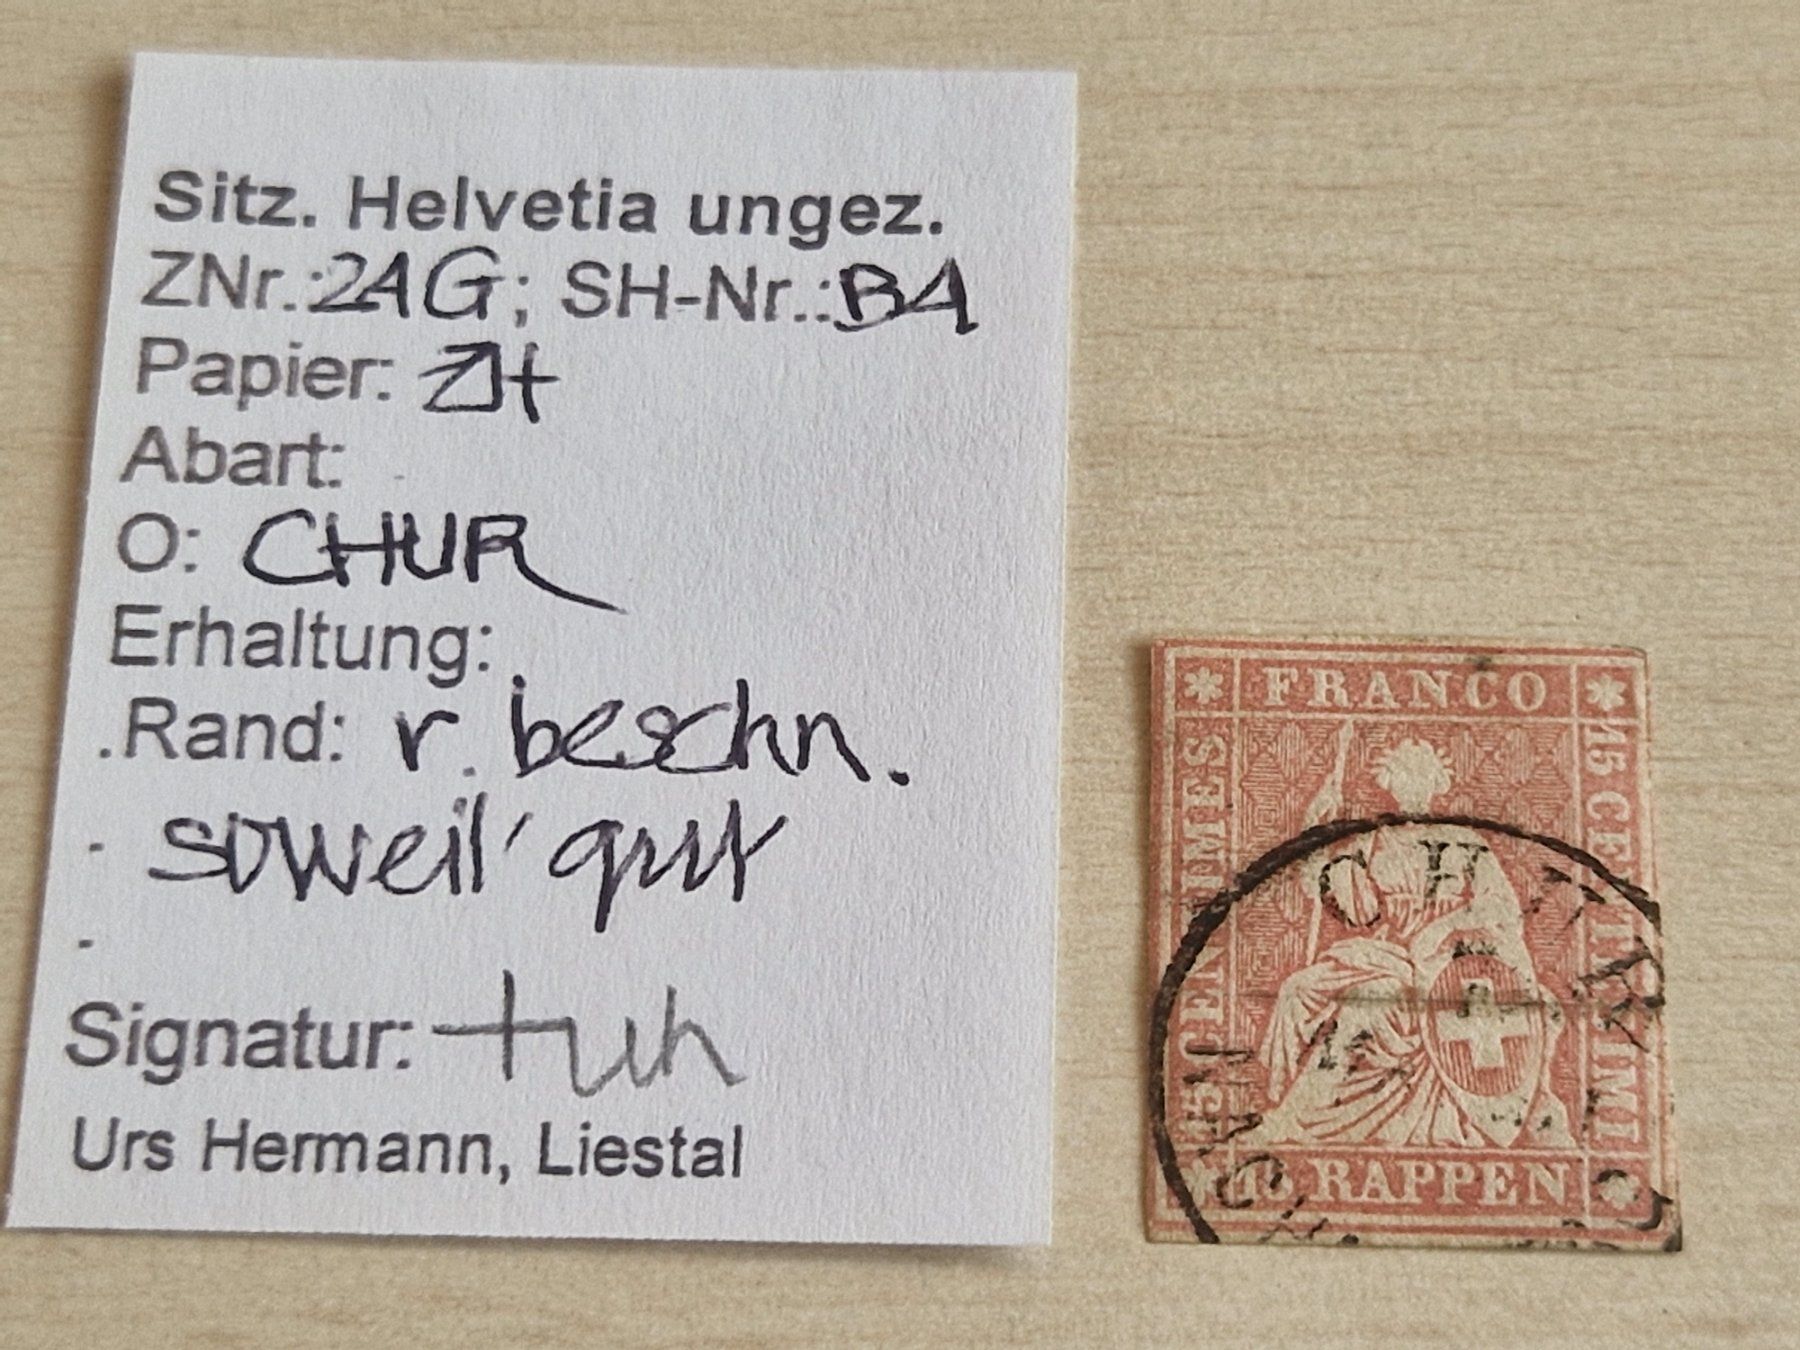 Sitz. Helvetia ungez.
ZNr.: 24G; SH-Nr.: B4
Papier:
Abart:
O: CHUR
Erhaltung:
. Rand: r. beschn.
- soweit gut
-
Signatur:
Urs Hermann, Liestal
FRANCO
15 CENTIMES
15 CENTIMI
15 RAPPEN
CHUR
NACHM